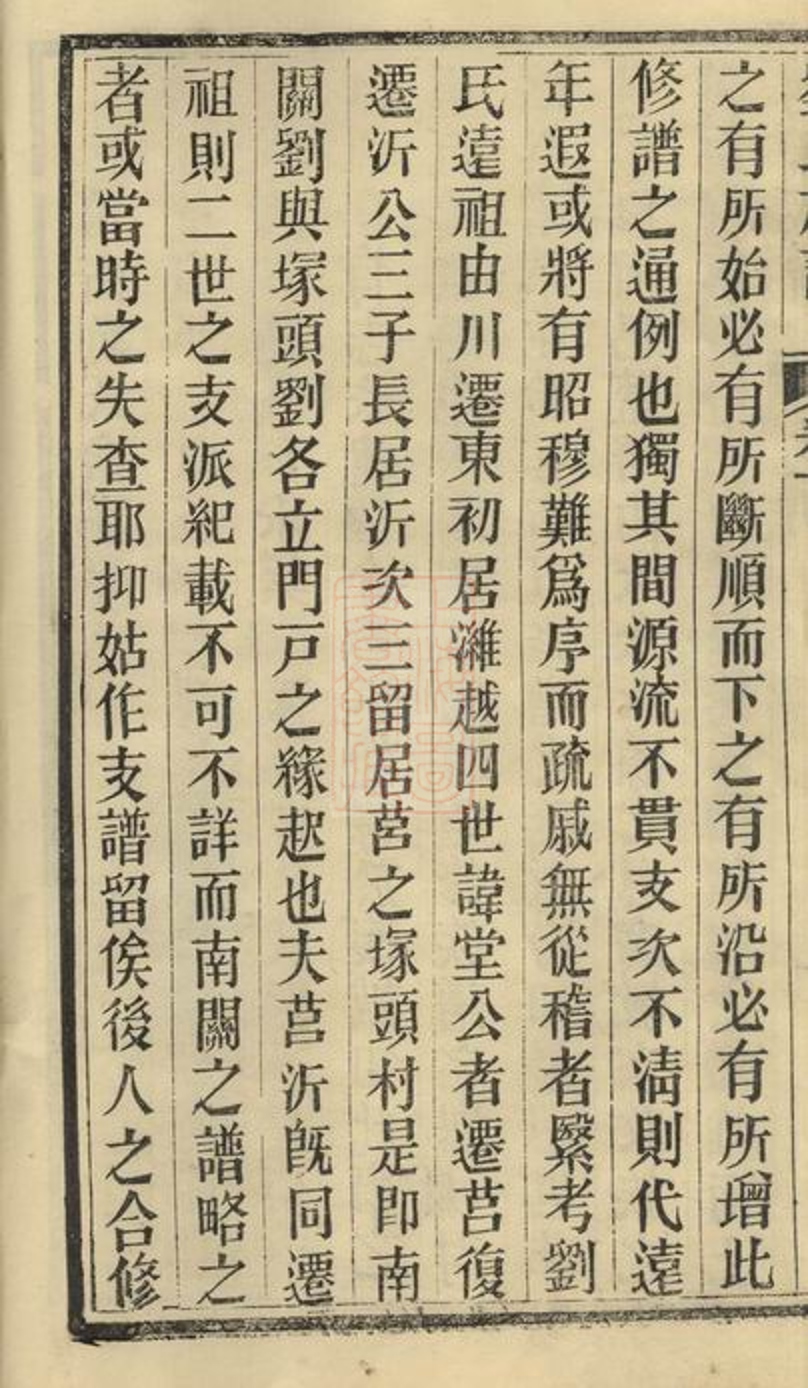 之有所始必有所斷順而下之有所沿必有所增此
修譜之通例也獨其間源流不貫支次不淸則代遠
年遐或將有昭穆難爲序而疏戚無從稽者緊考劉
氏遠祖由川遷東初居濰越四世諱堂公者遷莒復
遷沂公三子長居沂次三留居莒之塚頭村是卽南
關劉與塚頭劉各立門戸之緣起也夫莒沂旣同遷
祖則二世之支派紀載不可不詳而南關之譜略之
者或當時之失查耶抑姑作支譜留俟後人之合修